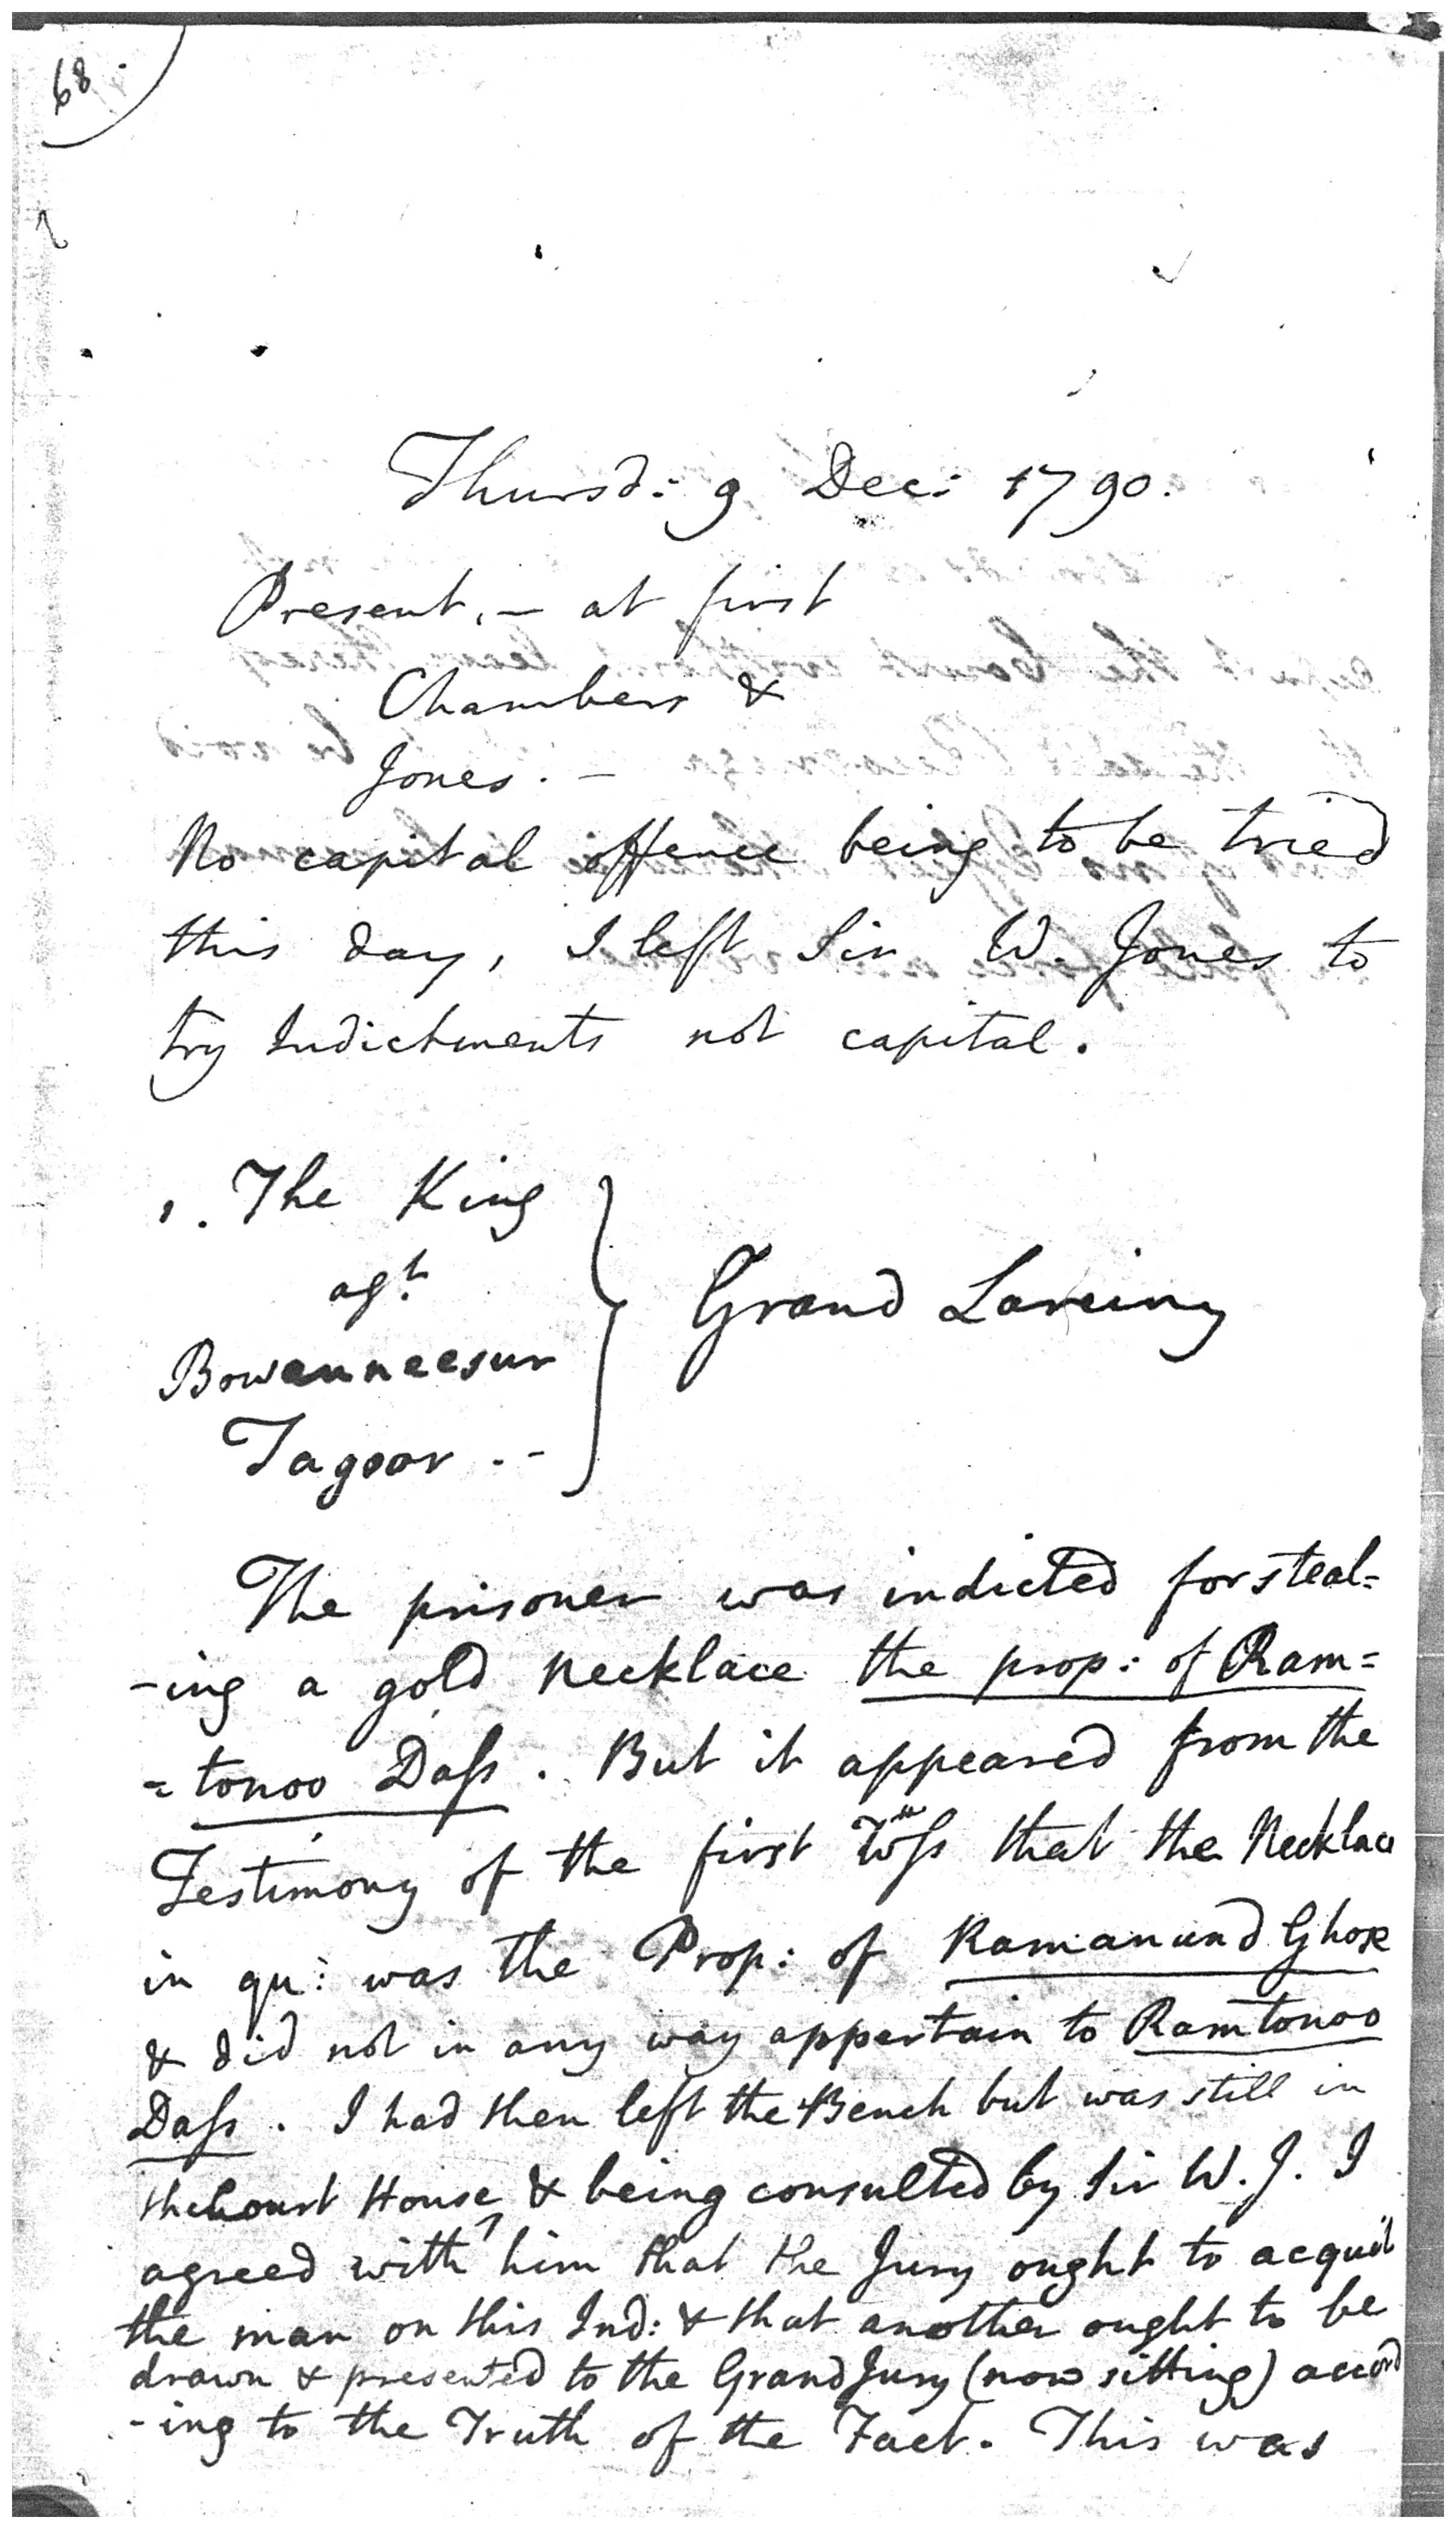 68.
Thursd: 9 Dec: 1790.
Present, – at first
Chambers &
Jones. –
No capital offence being to be tried
this day, I left Sir W. Jones to
try Indictments not capital.
1. The King
agt.
Bowanneesur
Tagoor. –
Grand Larceny
The prisoner was indicted for steal=
-ing a gold Necklace the prop: of Ram=
=tonoo Dass. But it appeared from the
Testimony of the first Wss that the Necklace
in qu: was the Prop: of Ramanund Ghose
& did not in any way appertain to Ramtonoo
Dass. I had then left the Bench but was still in
the Court House, & being consulted by Sir W. J. I
agreed with him that the Jury ought to acquit
the man on this Ind: & that another ought to be
drawn & presented to the Grand Jury (now sitting) accord
-ing to the Truth of the Fact. This was